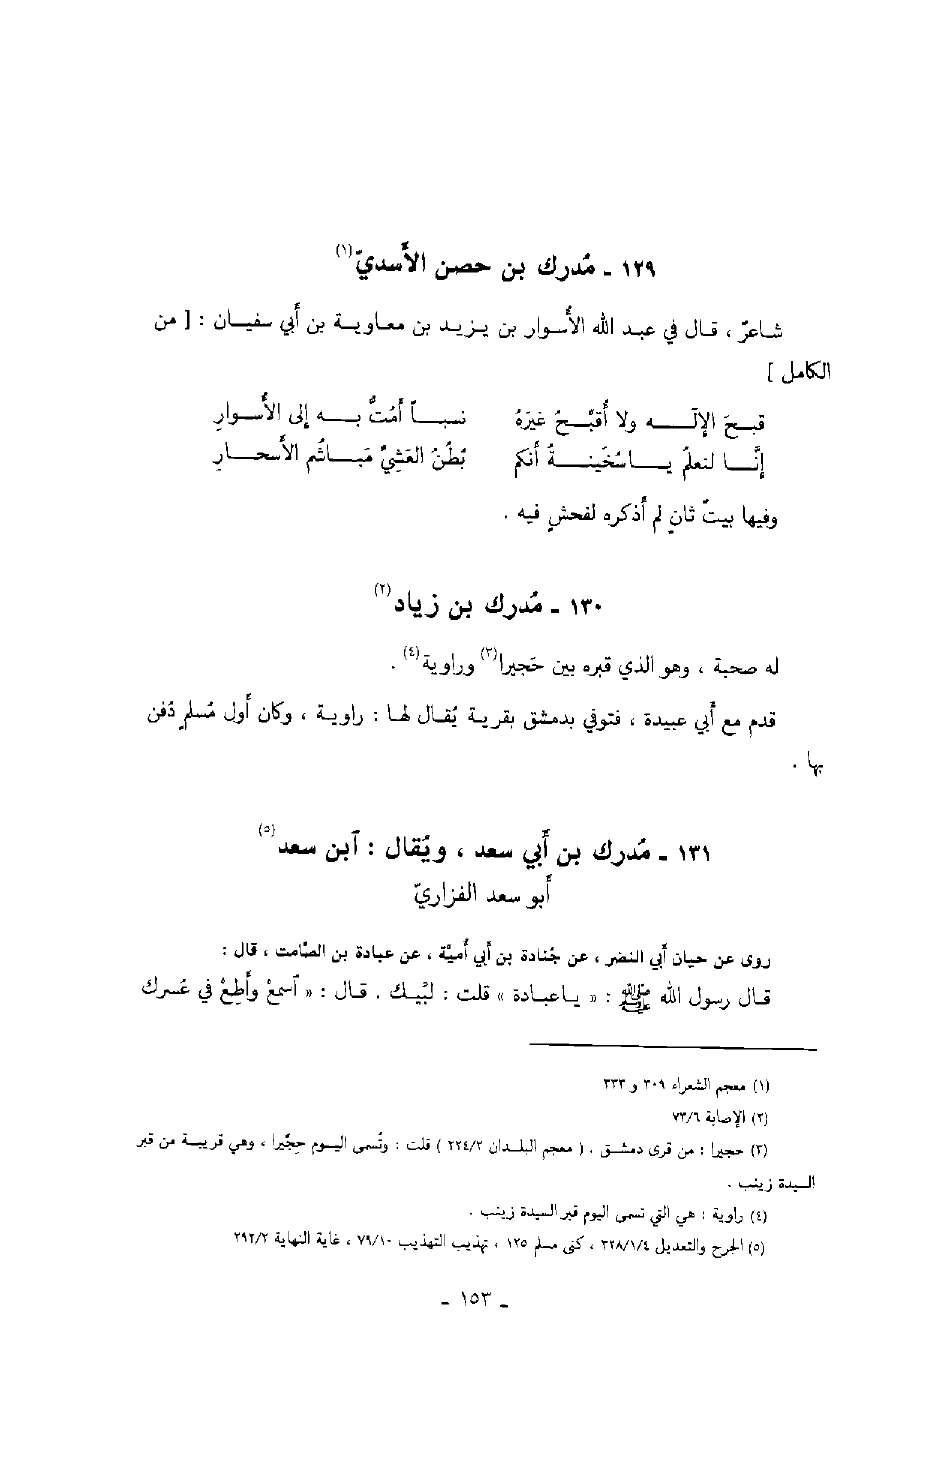 ١٢٩ ـ مُدرك بن حصن الأَسديّ(١)
شاعرٌ ، قـال في عبـد الله الأُسـوار بن يـزيـد بن معـاويـة بن أبي سفيـان : [ من
الكامل ]
قبـحَ الإلـٓــه ولا أُقبِّـحُ غيرَهُ نسبــاً أَمُتُّ بــه إلى الأُسـوارِ
إنَّـا لنعلمُ يـاسُخَينـةُ أنكم بُطُنُ العَشِيِّ مَبـاشُم الأسحـارِ
وفيها بيتٌ ثانٍ لم أذكره لفحشٍ فيه .
١٣٠ ـ مُدرك بن زياد(٢)
له صحبة ، وهو الذي قبره بين حَجيرا(٣) وراوية(٤) .
قدم مع أبي عبيدة ، فتوفي بدمشق بقرية يُقـال لهـا : راويـة ، وكان أول مُسلمٍ دُفن
بها .
١٣١ ـ مُدرك بن أبي سعد ، ويُقال : آبن سعد(٥)
أبو سعد الفزاريّ
روى عن حيان أبي النضر ، عن جُنادة بن أبي أميَّة ، عن عبادة بن الصَّامت ، قال :
قـال رسول الله ﷺ : « يـاعبـادة » قلت : لبَّيـك . قـال : « آسمعْ وأَطِعْ في عُسرك
(١) معجم الشعراء ٣٠٩ و ٣٣٣
(٢) الإصابة ٧٣/٦
(٣) حجيرا : من قرى دمشـق . ( معجم البلـدان ٢٢٤/٢ ) قلت : وتُسمى اليـوم حِجِّيرا ، وهي قريبـة من قبر
السيدة زينب .
(٤) راوية : هي التي تسمى اليوم قبر السيدة زينب .
(٥) الجرح والتعديل ٣٢٨/١/٤ ، كنى مسلم ١٢٥ ، تهذيب التهذيب ٧٩/١٠ ، غاية النهاية ٢٩٢/٢
ـ ١٥٣ ـ